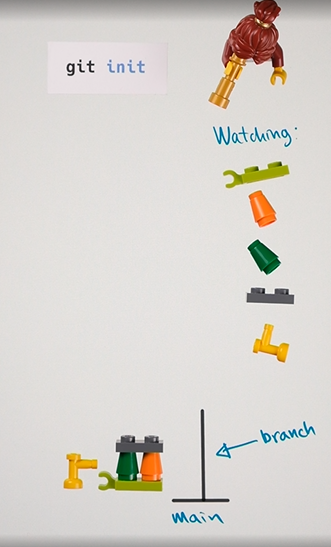 git init
Watching:
branch
main